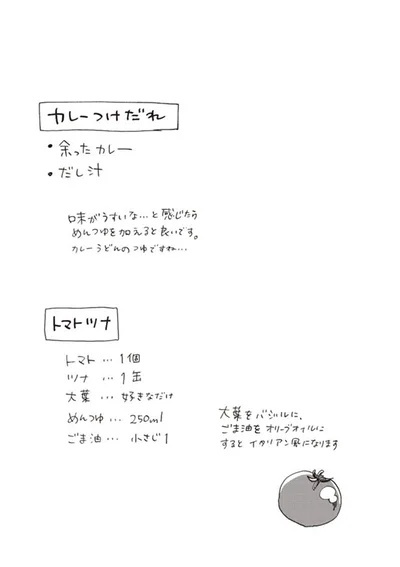 カレーつけだれ
・余ったカレー
・だし汁
味がうすいな…と感じたら
めんつゆを加えると良いです。
カレーうどんのつゆですね…
トマトツナ
トマト…1個
ツナ…1缶
大葉…好きなだけ
めんつゆ…250ml
ごま油…小さじ1
大葉をバジルに、
ごま油をオリーブオイルに
するとイタリアン風になります